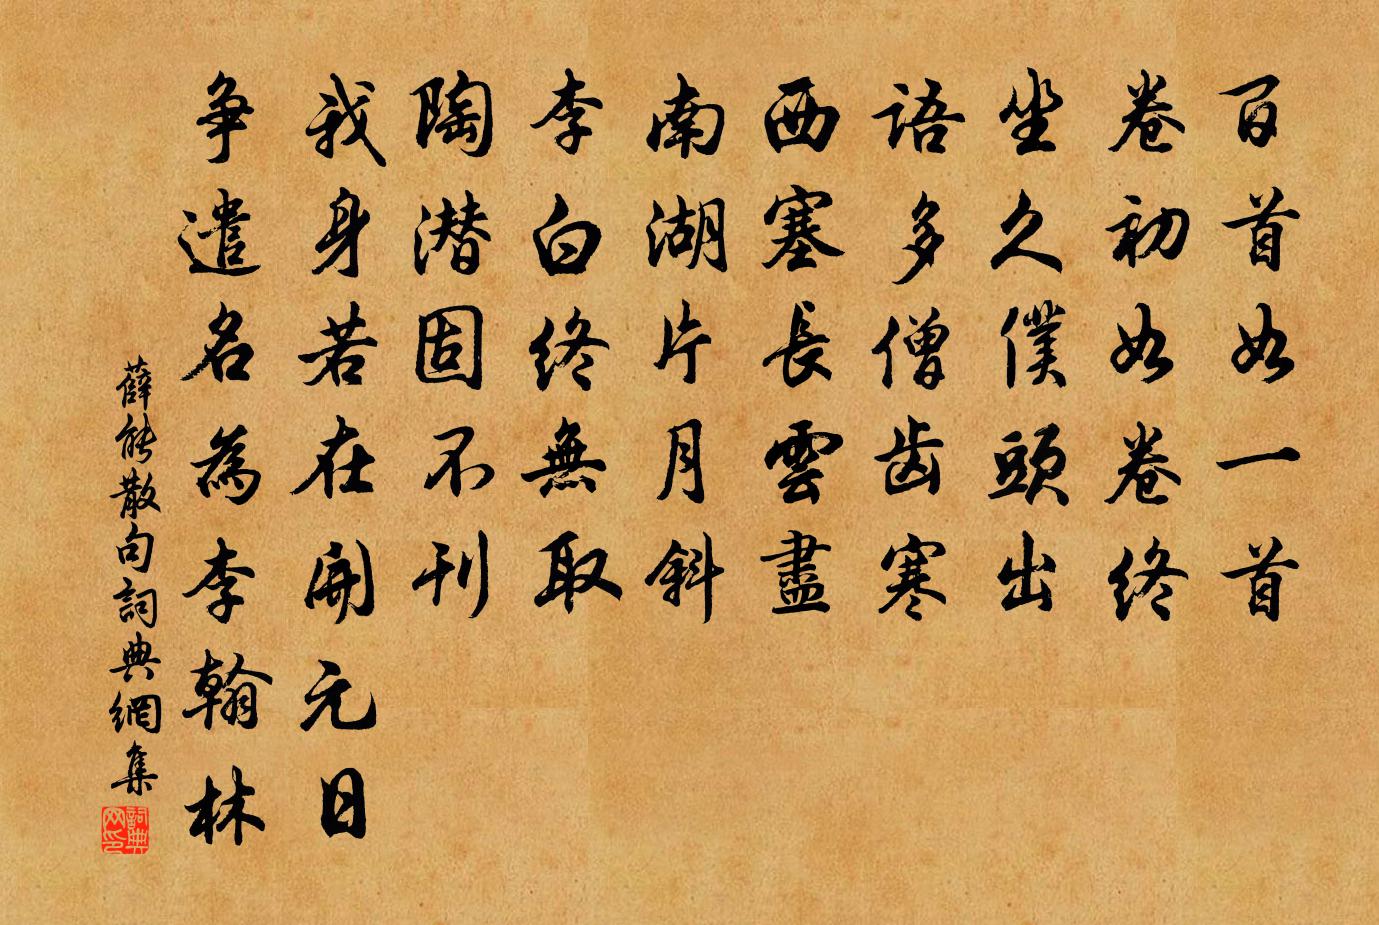 百首如一首
卷初如卷终
坐久僕頭出
語多僧齿寒
西塞長雲盡
南湖片月斜
李白终無取
陶潜固不刊
我身若在開元日
争遣名為李翰林
薛能散句詞典網集
詞典
网印